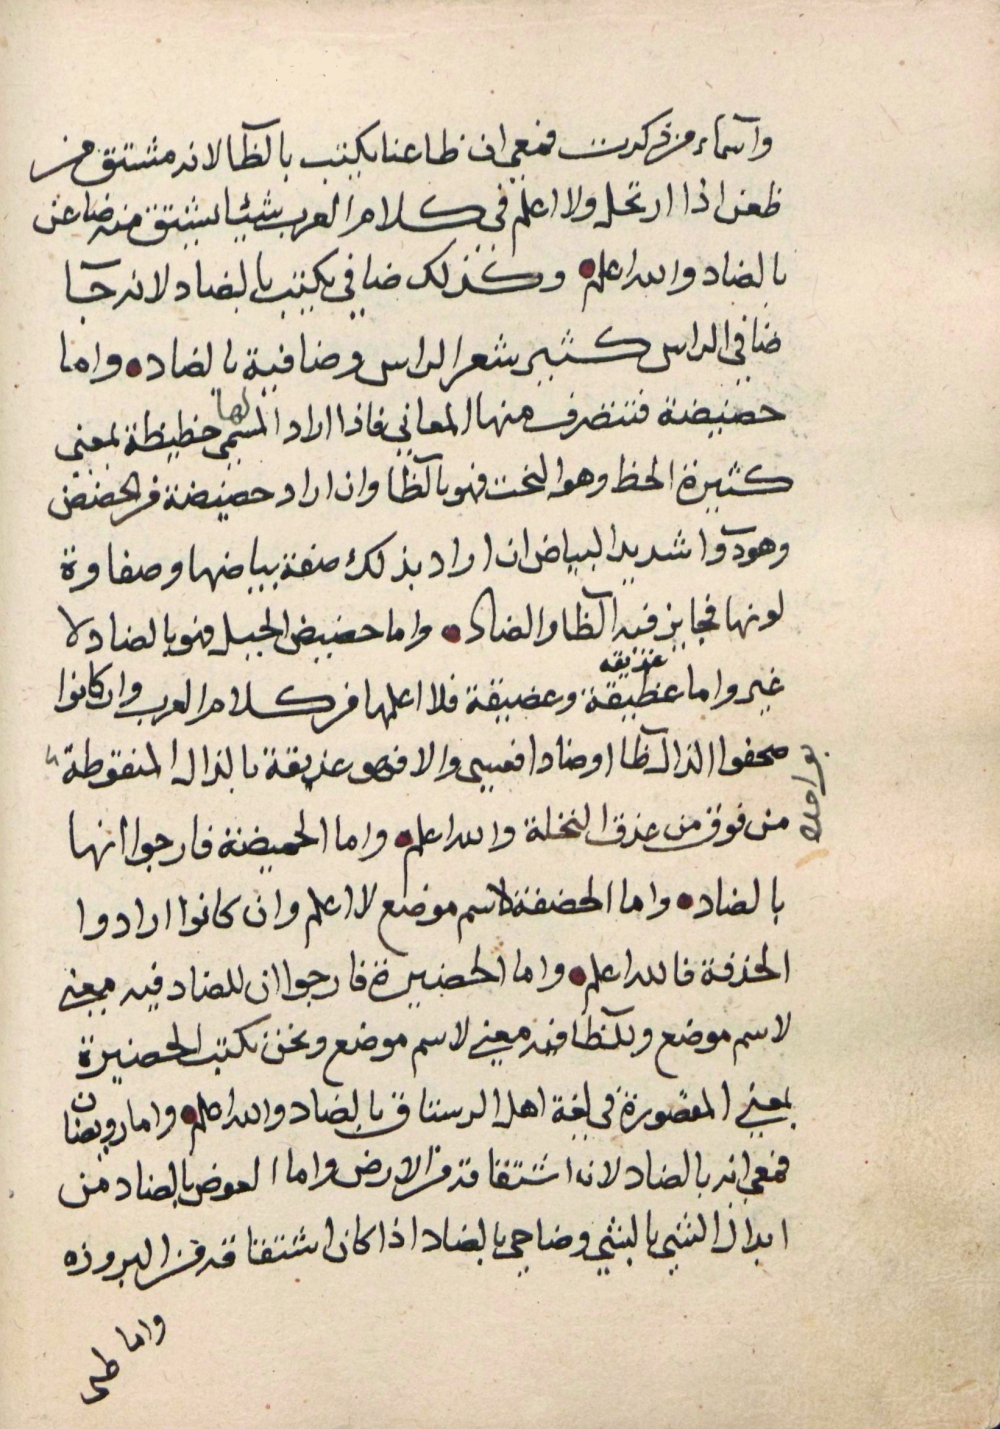 واسماء من ذكرت فمعي ان ظاعنا يكتب بالظا لانه مشتق من
ظعن اذا ارتحل ولا اعلم في كلام العرب شيئا يشتق منه ضاعن
بالضاد والله اعلم وكذلك ضافي يكتب بالضاد لانه جآ
ضافي الراس كثير شعر الراس وضافية بالضاد واما
حضيضة فتتصرف منها المعاني فاذا اراد المسمي لها حظيظة بمعني
كثيرة الحظ وهو البخت فهو بالظا وان اراد حضيضة من الحضض
وهو دوا شديد البياض ان اراد بذلك صفة بياضها وصفاوة
لونها فجايز فيه الظا والضاد واما حضيض الجبل فهو بالضاد لا
غير واما عظيقة وعضيقة فلا اعلمها من كلام العرب وان كانوا
عذيقه
صحفوا الذال ظا او ضادا فعسى والا فهو عذيقة بالذال المنقوطة
من فوق من عذق النخلة والله اعلم واما الحميضة فارجوا انها
بالضاد واما الحضفة لاسم موضع لا اعلم وان كانوا ارادوا
الحذفة فالله اعلم واما الحضيرة فارجوا ان للضاد فيه معني
لاسم موضع وللظا فيه معني لاسم موضع ونحن نكتب الحضيرة
بمعني المقصورة في لغة اهل الرستاق بالضاد والله اعلم واما رويضان
فمعي انه بالضاد لان اشتقاقه من الارض واما العوض بالضاد من
ابدال الشي بالشي وضاحي بالضاد اذا كان اشتقاقه من البروزه
واما